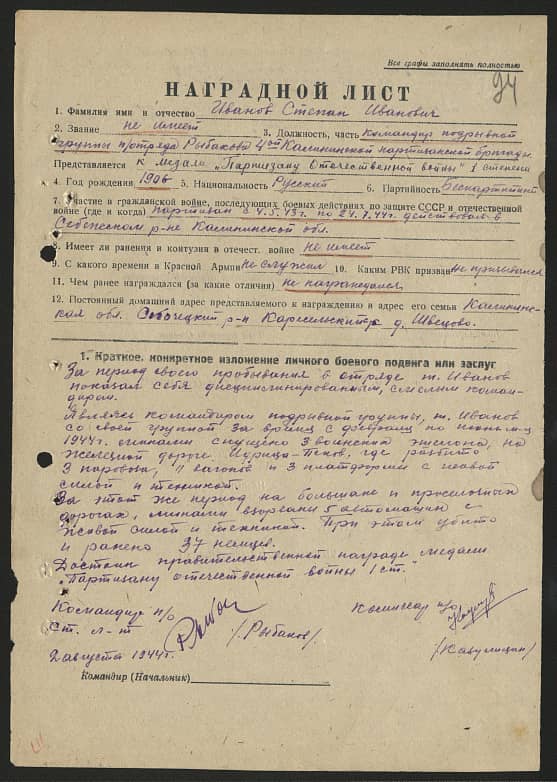 Все графы заполнять полностью
94
НАГРАДНОЙ ЛИСТ
1. Фамилия имя и отчество Иванов Степан Иванович
2. Звание не имеет 3. Должность, часть командир подрывной
группы п/отряда Рыбакова 4ой Калининской партизанской бригады
Представляется к медали "Партизану Отечественной войны" 1 степени
4. Год рождения 1906 5. Национальность Русский 6. Партийность Беспартийный
7. Участие в гражданской войне, последующих боевых действиях по защите СССР и отечественной
войне (где и когда) партизан с 4.5.43г. по 24.7.44г. действовал в
Себежском р-не Калининской обл.
8. Имеет ли ранения и контузия в отечест. войне не имеет
9. С какого времени в Красной Армии не служил 10. Каким РВК призван не призывался
11. Чем ранее награждался (за какие отличия) не награждался
12. Постоянный домашний адрес представляемого к награждению и адрес его семьи Калининс-
кая обл. р-н д. Швецово.
1. Краткое, конкретное изложение личного боевого подвига или заслуг
За период своего пребывания в отряде т. Иванов
показал себя дисциплинированным, смелым коман-
диром.
Являясь командиром подрывной группы, т. Иванов
со своей группой за время с февраля по июнь м-ц
1944г. минами спущено 3 воинских эшелона, на
железной дороге Идрица-Псков, где разбито
3 паровоза, 11 вагонов и 3 платформы с живой
силой и техникой.
За этот же период на большаке и проселочных
дорогах, минами взорваны 5 автомашин с
живой силой и техникой. При этом убито
и ранено 37 немцев.
Достоин правительственной награде медали
"Партизану отечественной войны 1 ст."
Командир п/о
Ст. л-т /Рыбаков/
Комиссар п/о
2 августа 1944г.
Командир (Начальник)